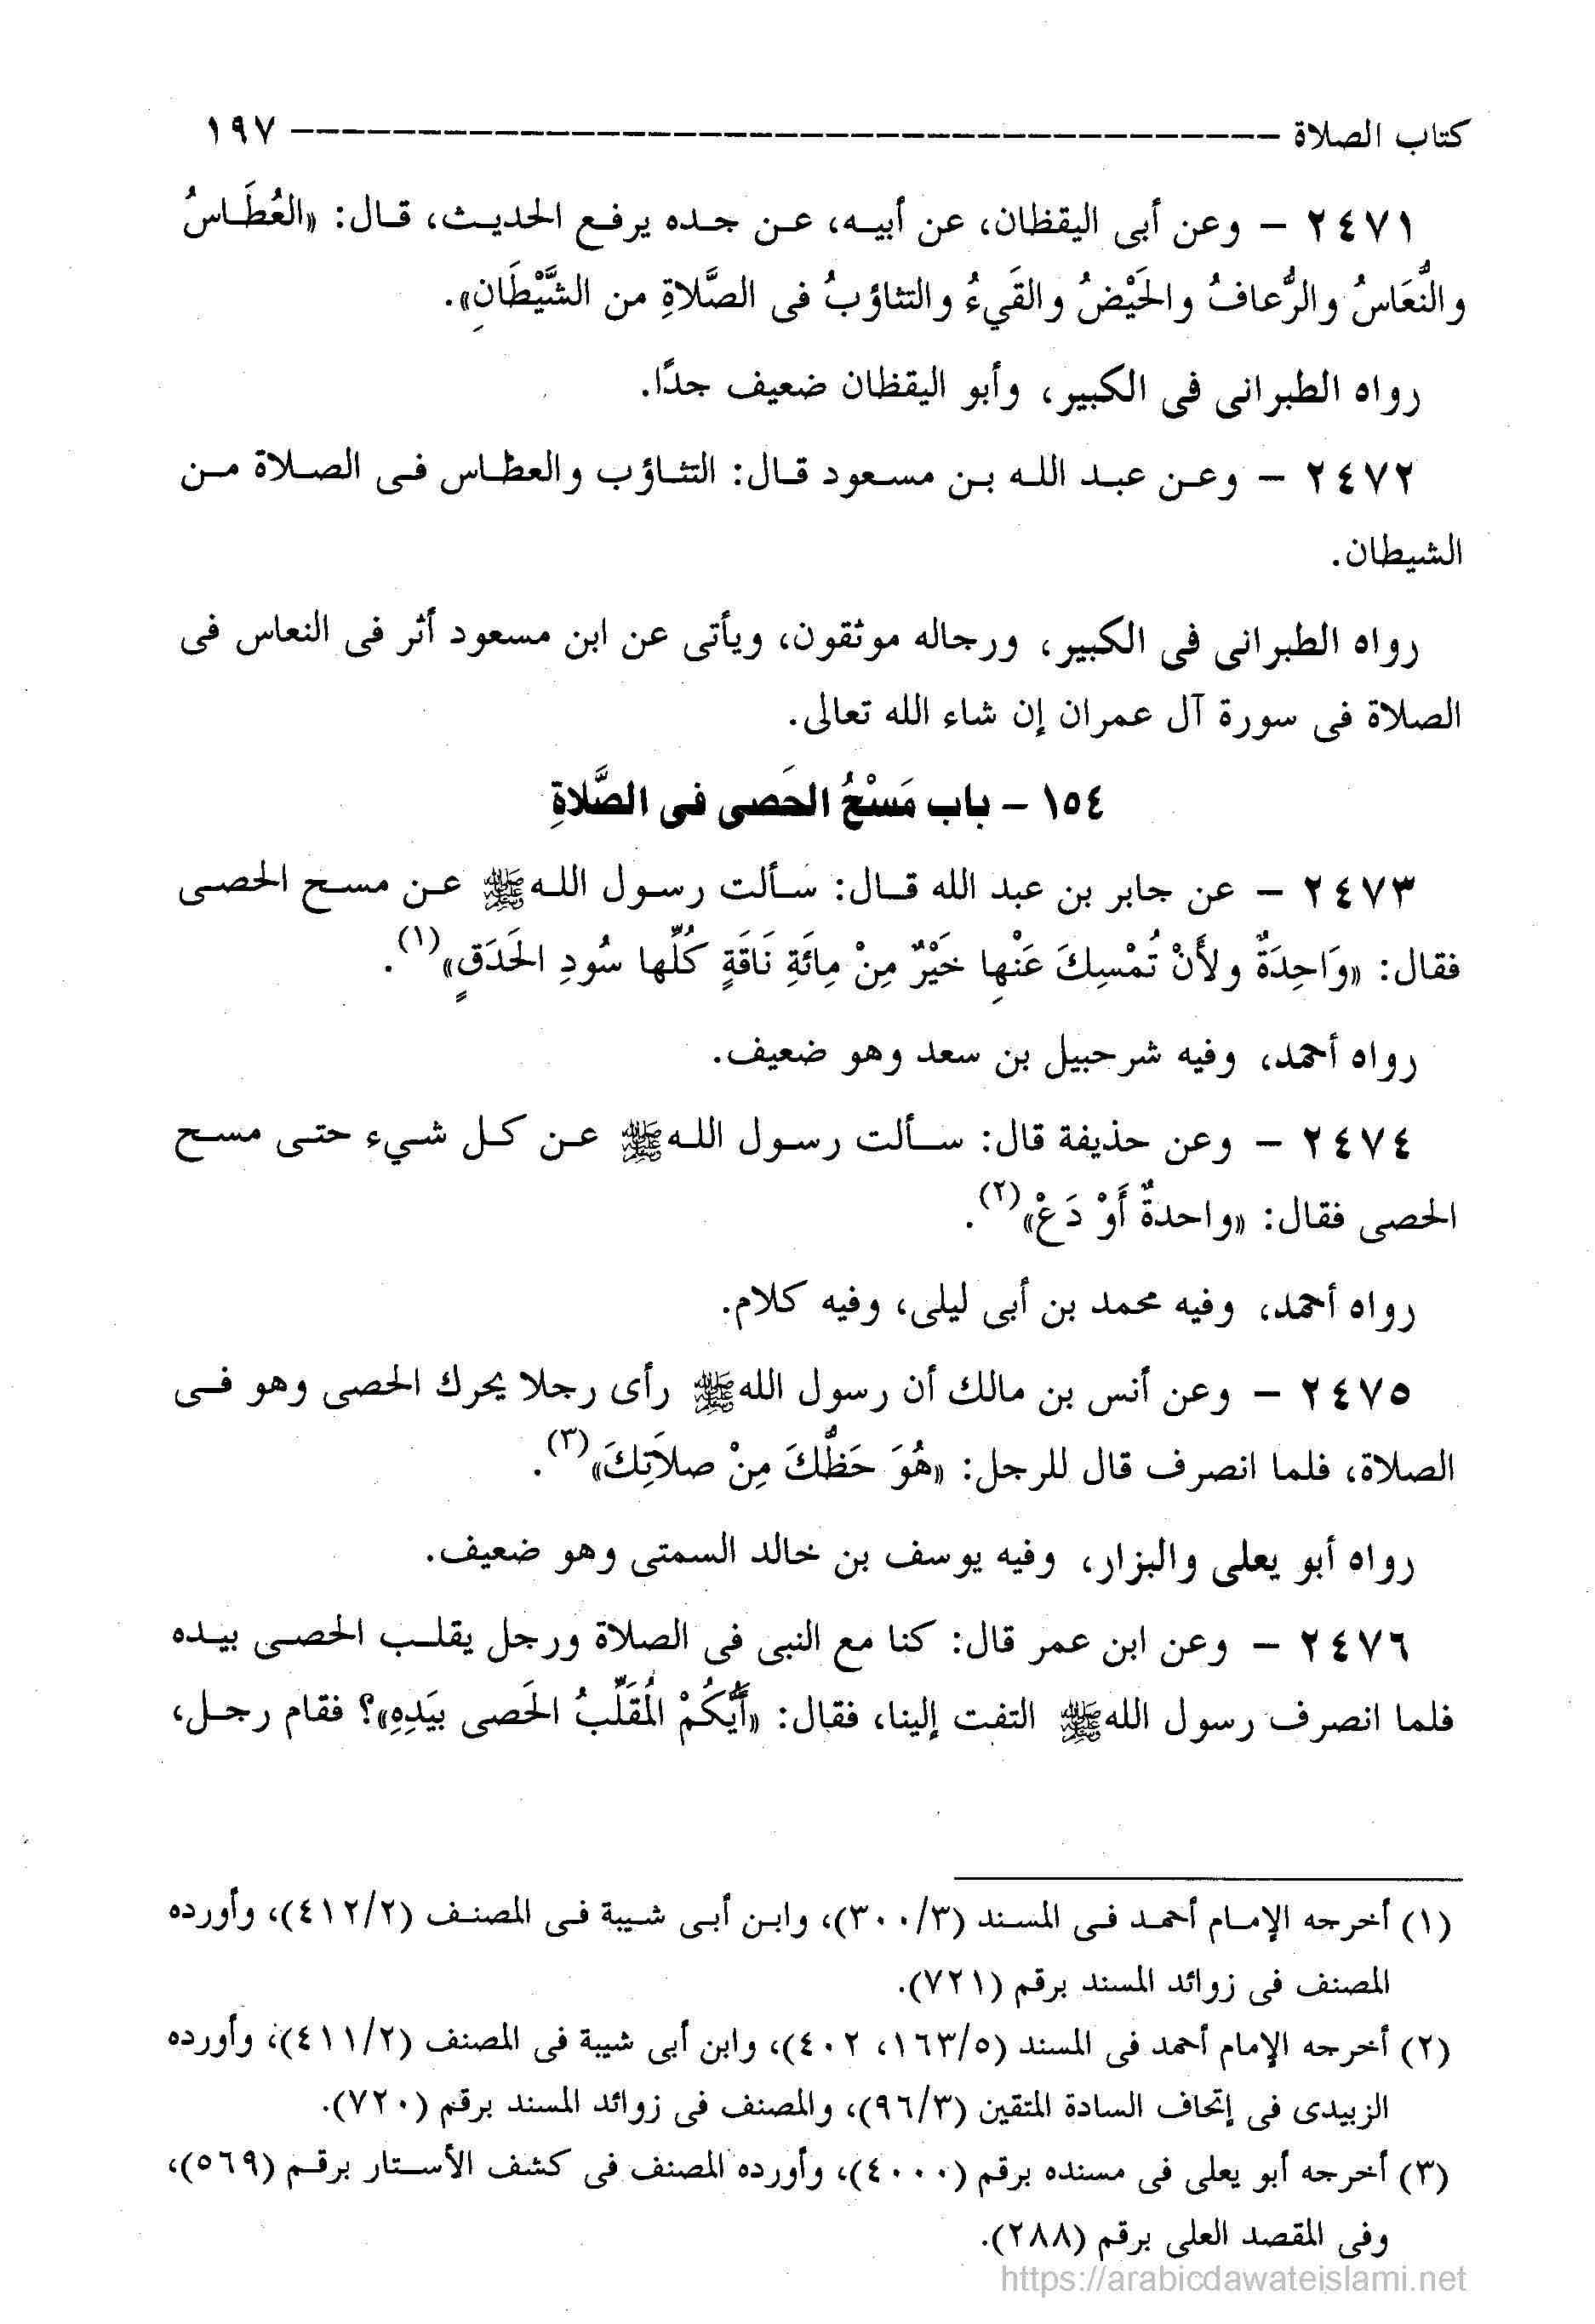 كتاب الصلاة ------------------------------------------ ١٩٧
٢٤٧١ - وعن أبى اليقظان، عن أبيه، عن جده يرفع الحديث، قال: «العُطَاسُ
والنُّعَاسُ والرُّعافُ والحَيْضُ والقَيءُ والتثاؤبُ فى الصَّلاةِ من الشَّيْطَانِ».
رواه الطبرانى فى الكبير، وأبو اليقظان ضعيف جدًا.
٢٤٧٢ - وعن عبد الله بن مسعود قال: التثاؤب والعطاس فى الصلاة من
الشيطان.
رواه الطبرانى فى الكبير، ورجاله موثقون، ويأتى عن ابن مسعود أثر فى النعاس فى
الصلاة فى سورة آل عمران إن شاء الله تعالى.
١٥٤ - باب مَسْحُ الحَصى فى الصَّلاةِ
٢٤٧٣ - عن جابر بن عبد الله قال: سألت رسول الله ﷺ عن مسح الحصى
فقال: «وَاحِدَةٌ ولأَنْ تُمْسِكَ عَنْهِا خَيْرٌ مِنْ مِائَةِ نَاقَةٍ كُلِّها سُودِ الحَدَقٍ»(١).
رواه أحمد، وفيه شرحبيل بن سعد وهو ضعيف.
٢٤٧٤ - وعن حذيفة قال: سألت رسول الله ﷺ عن كل شيء حتى مسح
الحصى فقال: «واحدةٌ أَوْ دَعْ»(٢).
رواه أحمد، وفيه محمد بن أبى ليلى، وفيه كلام.
٢٤٧٥ - وعن أنس بن مالك أن رسول الله ﷺ رأى رجلا يحرك الحصى وهو فى
الصلاة، فلما انصرف قال للرجل: «هُوَ حَظُّكَ مِنْ صلاَتِكَ»(٣).
رواه أبو يعلى والبزار، وفيه يوسف بن خالد السمتى وهو ضعيف.
٢٤٧٦ - وعن ابن عمر قال: كنا مع النبى فى الصلاة ورجل يقلب الحصى بيده
فلما انصرف رسول الله ﷺ التفت إلينا، فقال: «أَيُّكُمْ المُقَلِّبُ الحَصى بيَدِهِ»؟ فقام رجل،
(١) أخرجه الإمام أحمد فى المسند (٣٠٠/٣)، وابن أبى شيبة فى المصنف (٤١٢/٢)، وأورده
المصنف فى زوائد المسند برقم (٧٢١).
(٢) أخرجه الإمام أحمد فى المسند (١٦٣/٥، ٤٠٢)، وابن أبى شيبة فى المصنف (٤١١/٢)، وأورده
الزبيدى فى إتحاف السادة المتقين (٩٦/٣)، والمصنف فى زوائد المسند برقم (٧٢٠).
(٣) أخرجه أبو يعلى فى مسنده برقم (٤٠٠٠)، وأورده المصنف فى كشف الأستار برقم (٥٦٩)،
وفى المقصد العلى برقم (٢٨٨).
https://arabicdawateislami.net